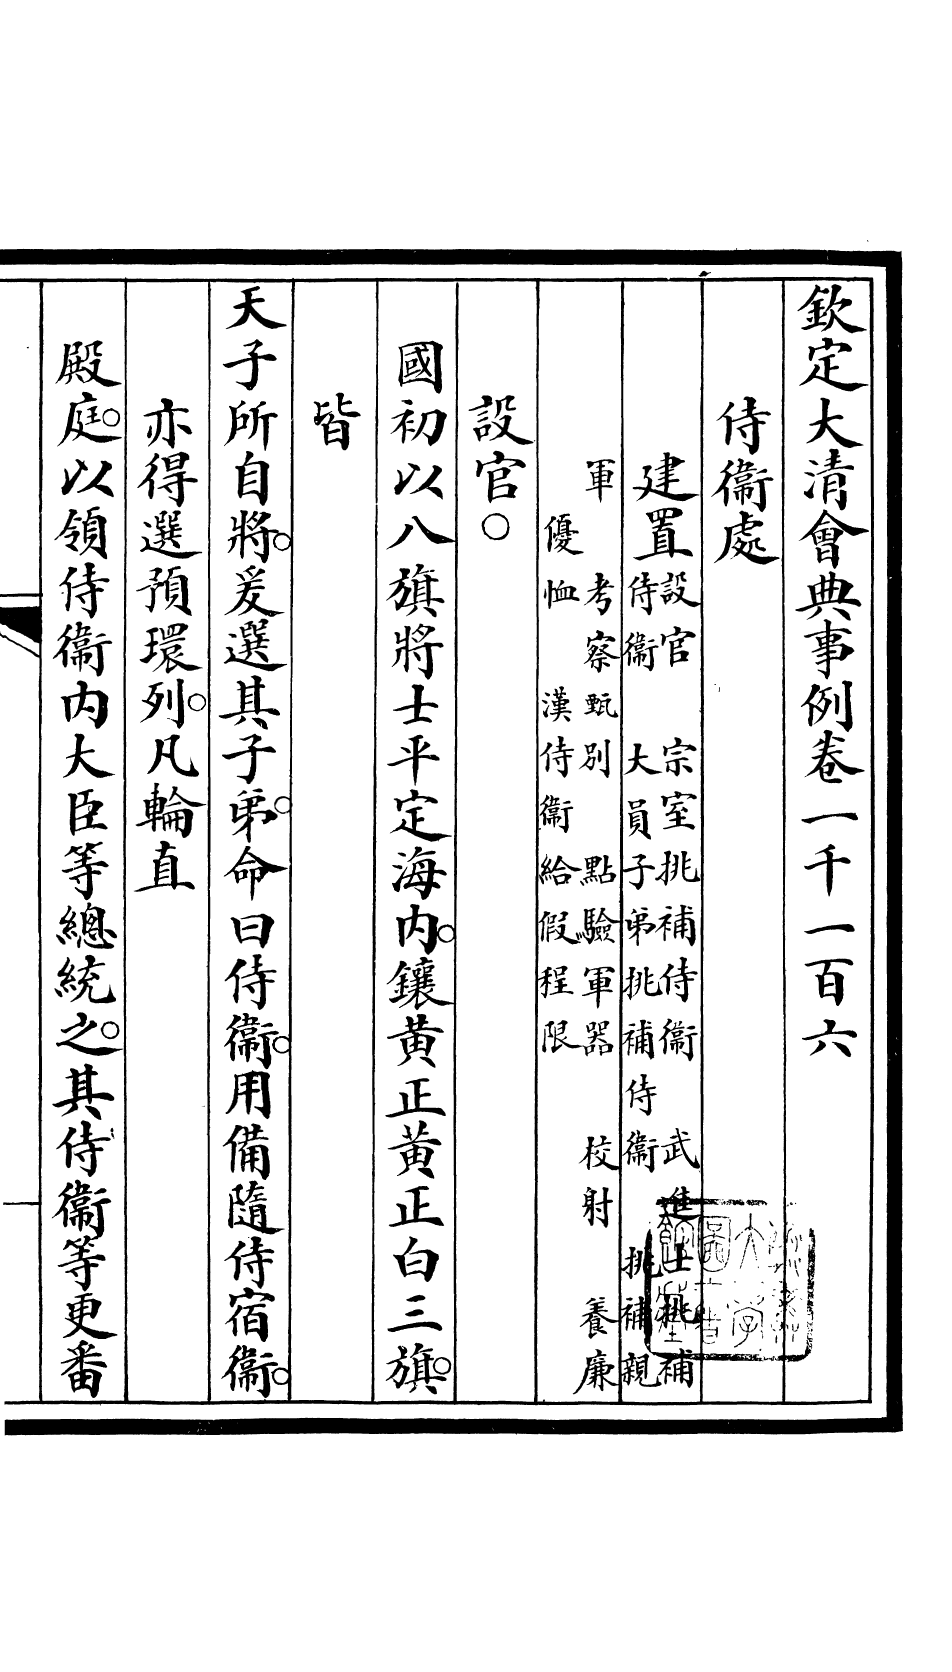 欽定大清會典事例卷一千一百六
侍衞處
建置設官 宗室挑補侍衞 武進士挑補
侍衞 大員子弟挑補侍衞 挑補親
軍 考察甄別 點驗軍器 校射 養廉
優恤 漢侍衞給假程限
設官○
國初以八旗將士平定海內○鑲黃正黃正白三旗○
皆
天子所自將○爰選其子弟○命曰侍衞○用備隨侍宿衞○
亦得選預環列○凡輪直
殿庭○以領侍衞內大臣等總統之○其侍衞等更番